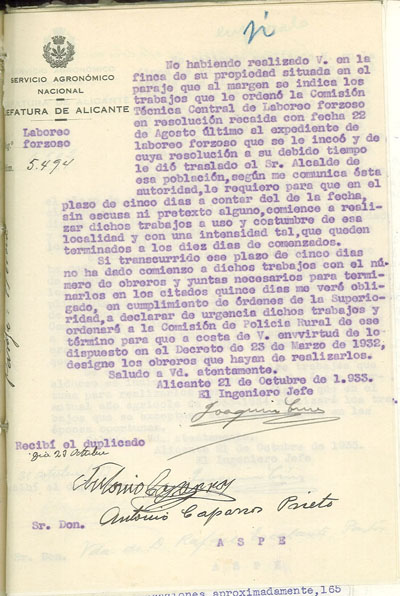 SERVICIO AGRONÓMICO
NACIONAL
JEFATURA DE ALICANTE
Laboreo
forzoso
5.494
No habiendo realizado V. en la
finca de su propiedad situada en el
paraje que al margen se indica los
trabajos que le ordenó la Comisión
Técnica Central de Laboreo forzoso
en resolución recaida con fecha 22
de Agosto último al expediente de
laboreo forzoso que se le incoó y de
cuya resolución a su debido tiempo
le dió traslado el Sr. Alcalde de
esa población, según me comunica ésta
autoridad, le requiero para que en el
plazo de cinco dias a contar del de la fecha,
sin escusa ni pretexto alguno, comience a reali-
zar dichos trabajos a uso y costumbre de esa
localidad y con una intensidad tal, que queden
terminados a los diez dias de comenzados.
Si transcurrido ese plazo de cinco dias
no ha dado comienzo a dichos trabajos con el nú-
mero de obreros y yuntas necesarios para termi-
narlos en los citados quince dias me veré obli-
gado, en cumplimiento de órdenes de la Superio-
ridad, a declarar de urgencia dichos trabajos y
ordenaré a la Comisión de Policia Rural de ese
término para que a costa de V. envvirtud de lo
dispuesto en el Decreto de 23 de Marzo de 1932,
designe los obreros que hayan de realizarlos.
Saludo a Vd. atentamente.
Alicante 21 de Octubre de 1.933.
El Ingeniero Jefe
Recibí el duplicado
dia 23 Octubre
Antonio Caparros
Antonio Caparros Prieto
Sr. Don.
A S P E
aproximadamente, 165